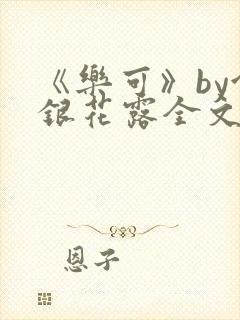 《樂可》by
銀花露全文
恩子